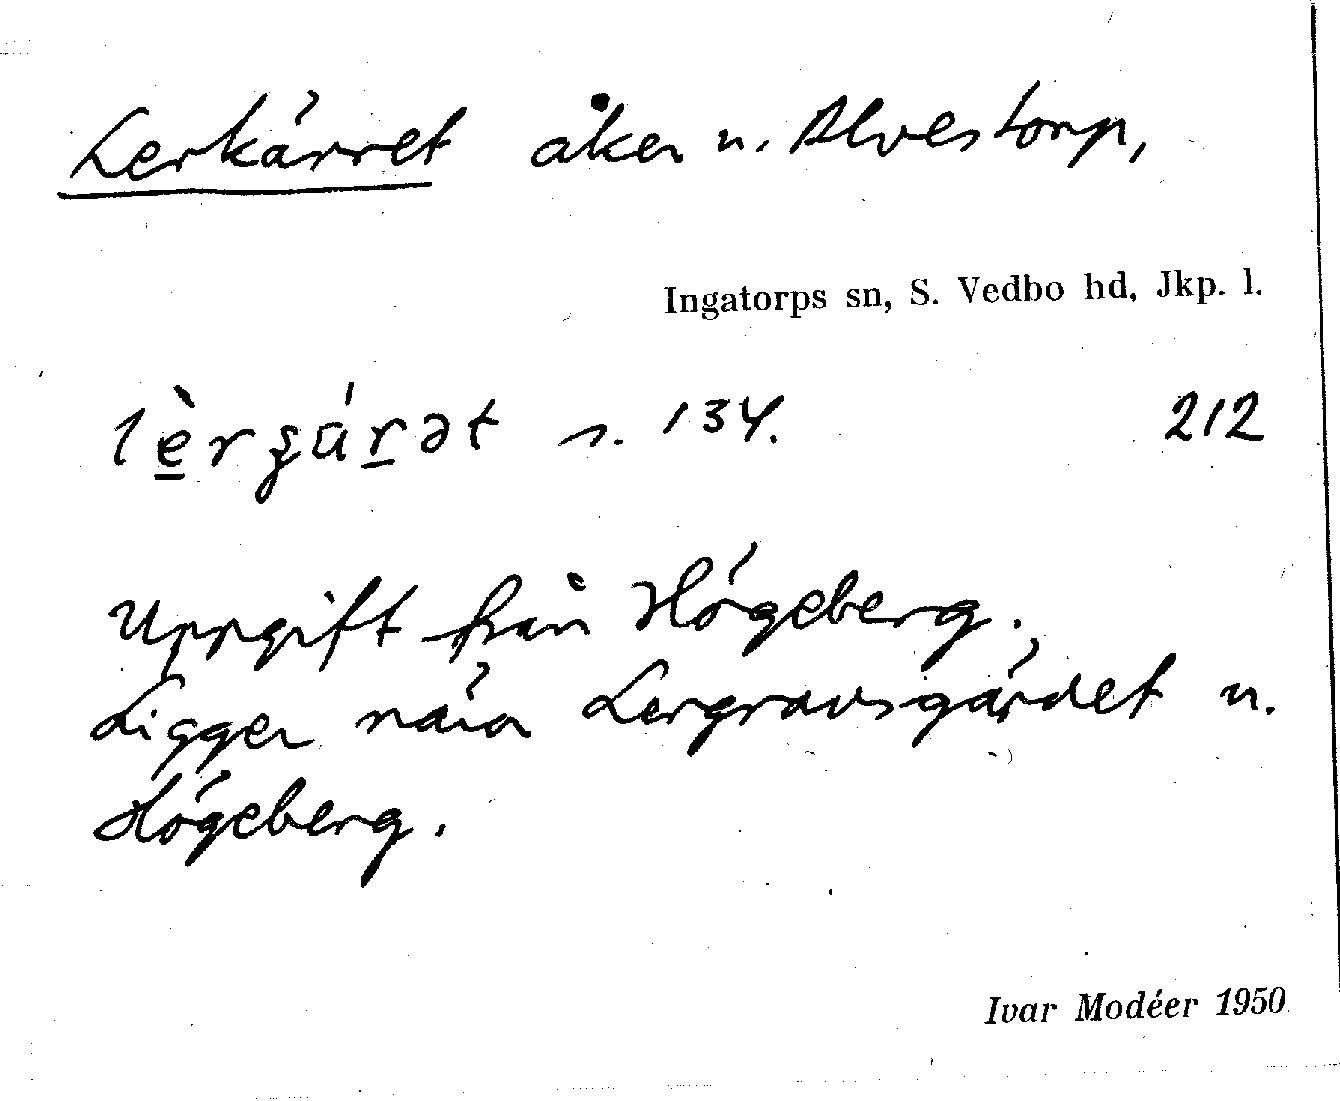 Lerkärret åker u. Alvestorp,
Ingatorps sn, S. Vedbo hd, Jkp. l.
s. 134. 212
Uppgift från Högeberg.
Ligger nära Lergravsgärdet u.
Högeberg.
Ivar Modéer 1950